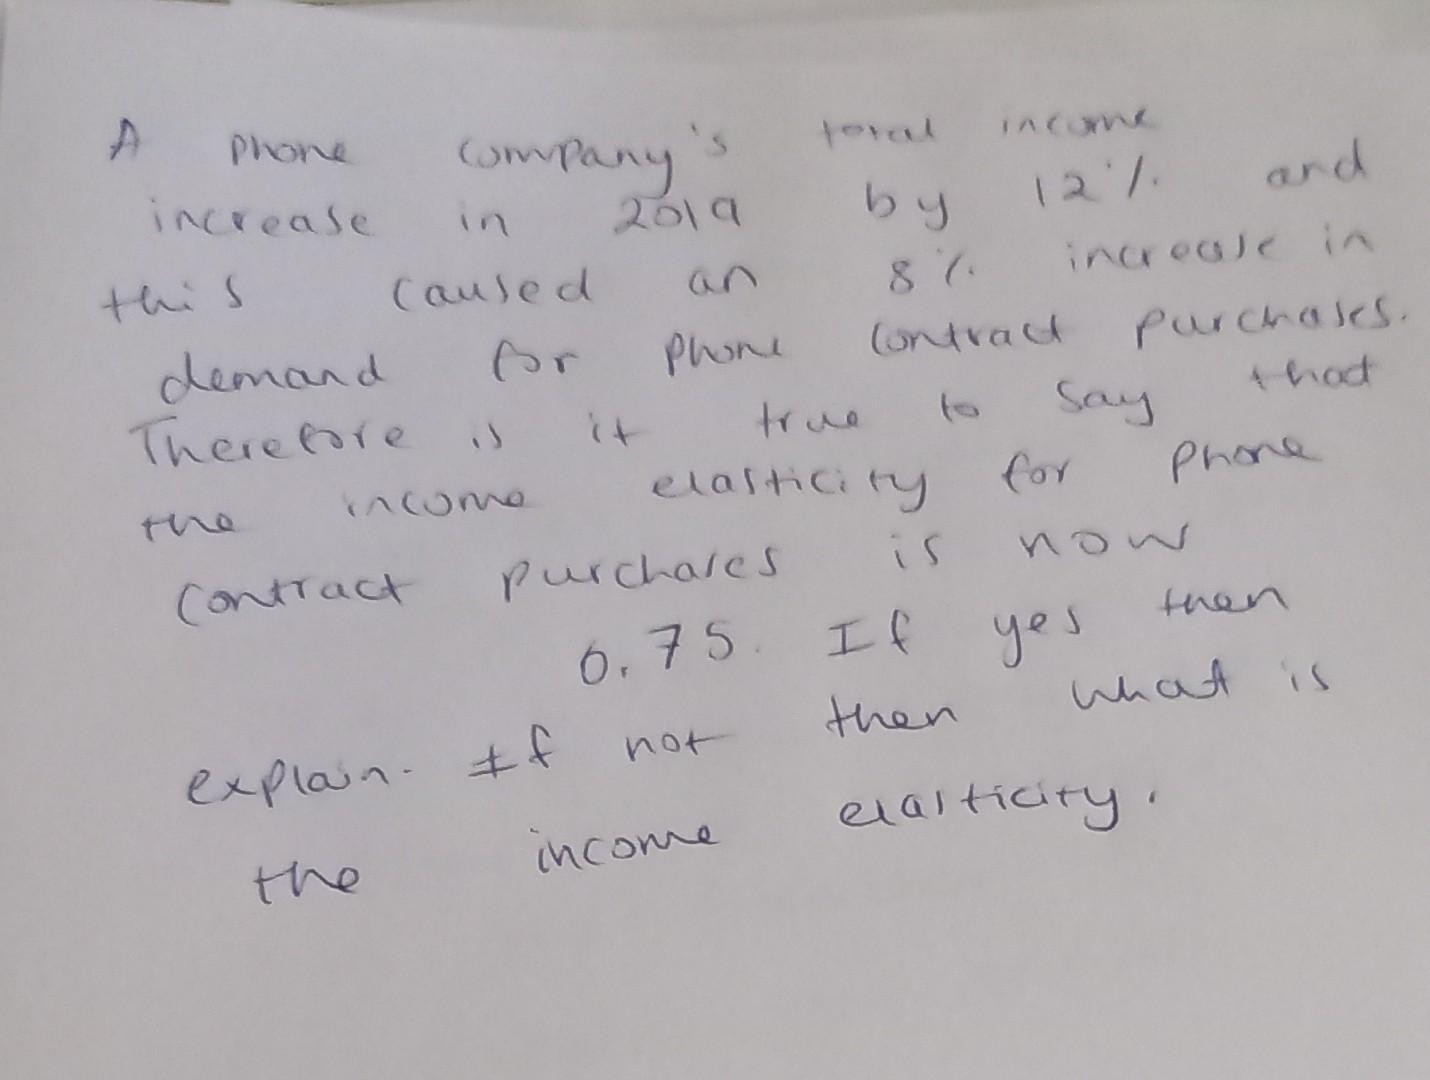 A phone company's total income
increase in 2019 by 12% and
this caused an 8% increase in
demand for phone contract purchases.
Therefore is it true to say that
the income elasticity for phone
contract purchases is now
0.75. If yes then
explain. If not then what is
the income elasticity.